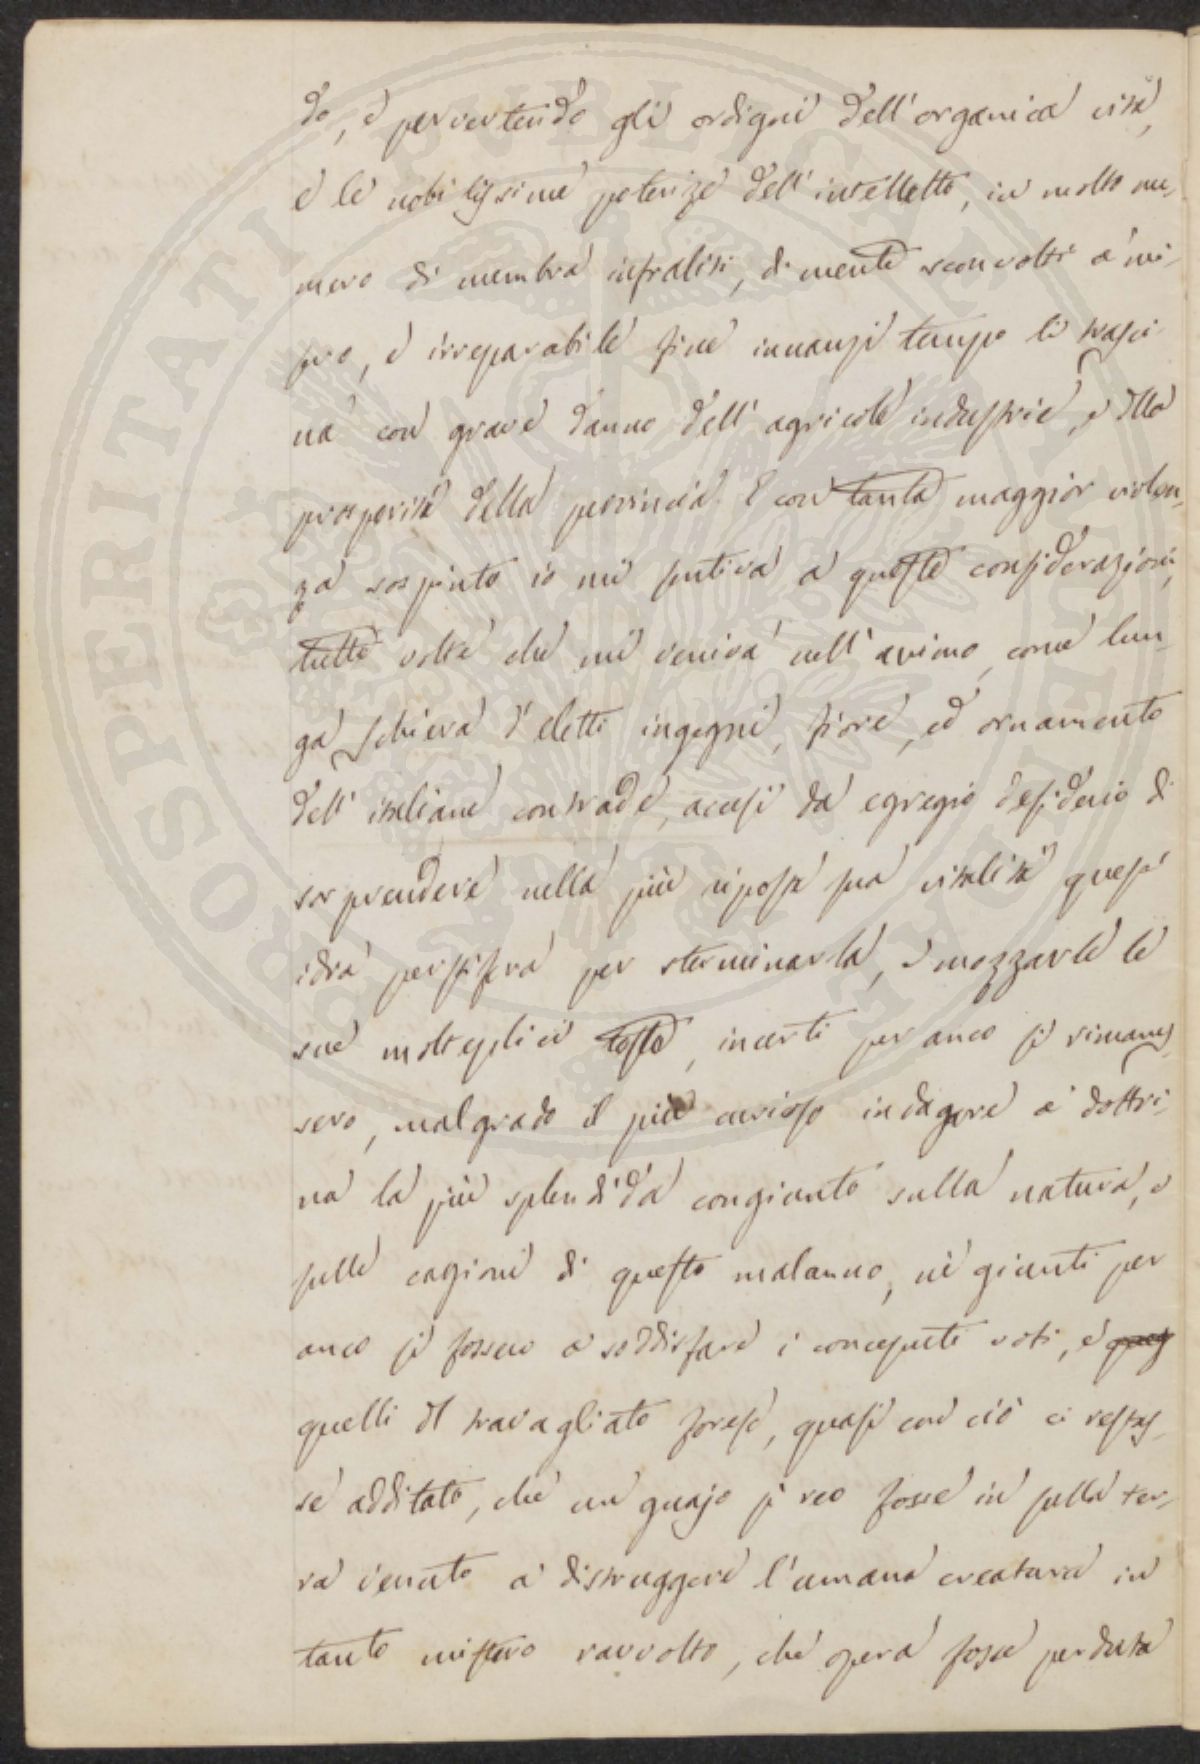 do, e pervertendo gli ordigni dell'organica vita,
e le nobilissime potenze dell'intelletto, in molto nu-
mero di membra infraliti, di mente sconvolti a mi-
sero, e irreparabile fine innanzi tempo li trasci-
na con grave danno dell'agricole industrie, e della
prosperità della provincia. E con tanta maggior violen-
za sospinto io mi sentiva a queste considerazioni,
tutte volte che mi veniva nell'animo, come lun-
ga schiera d'eletti ingegni, fiore, ed ornamento
dell'italiane contrade, accesi da egregio desiderio di
sorprendere nella più riposta sua vitalità quest'
idra pestifera per sterminarla, e mozzarle le
sue molteplici teste, incerti per anco si rimanes-
sero, malgrado il più curioso indagare a dottri-
na la più splendida congiunto sulla natura, e
sulle cagioni di questo malanno, nè giunti per
anco si fossero a soddisfare i concepute voti, e
quelli del travagliato forese, quasi con ciò ci restas-
se additato, che un guajo sì reo fosse in sulla ter-
ra venuto a distruggere l'umana creatura in
tanto mistero ravvolto, che opera fosse perduta
PROSPERITATI PUBLICAE AUGENDAE